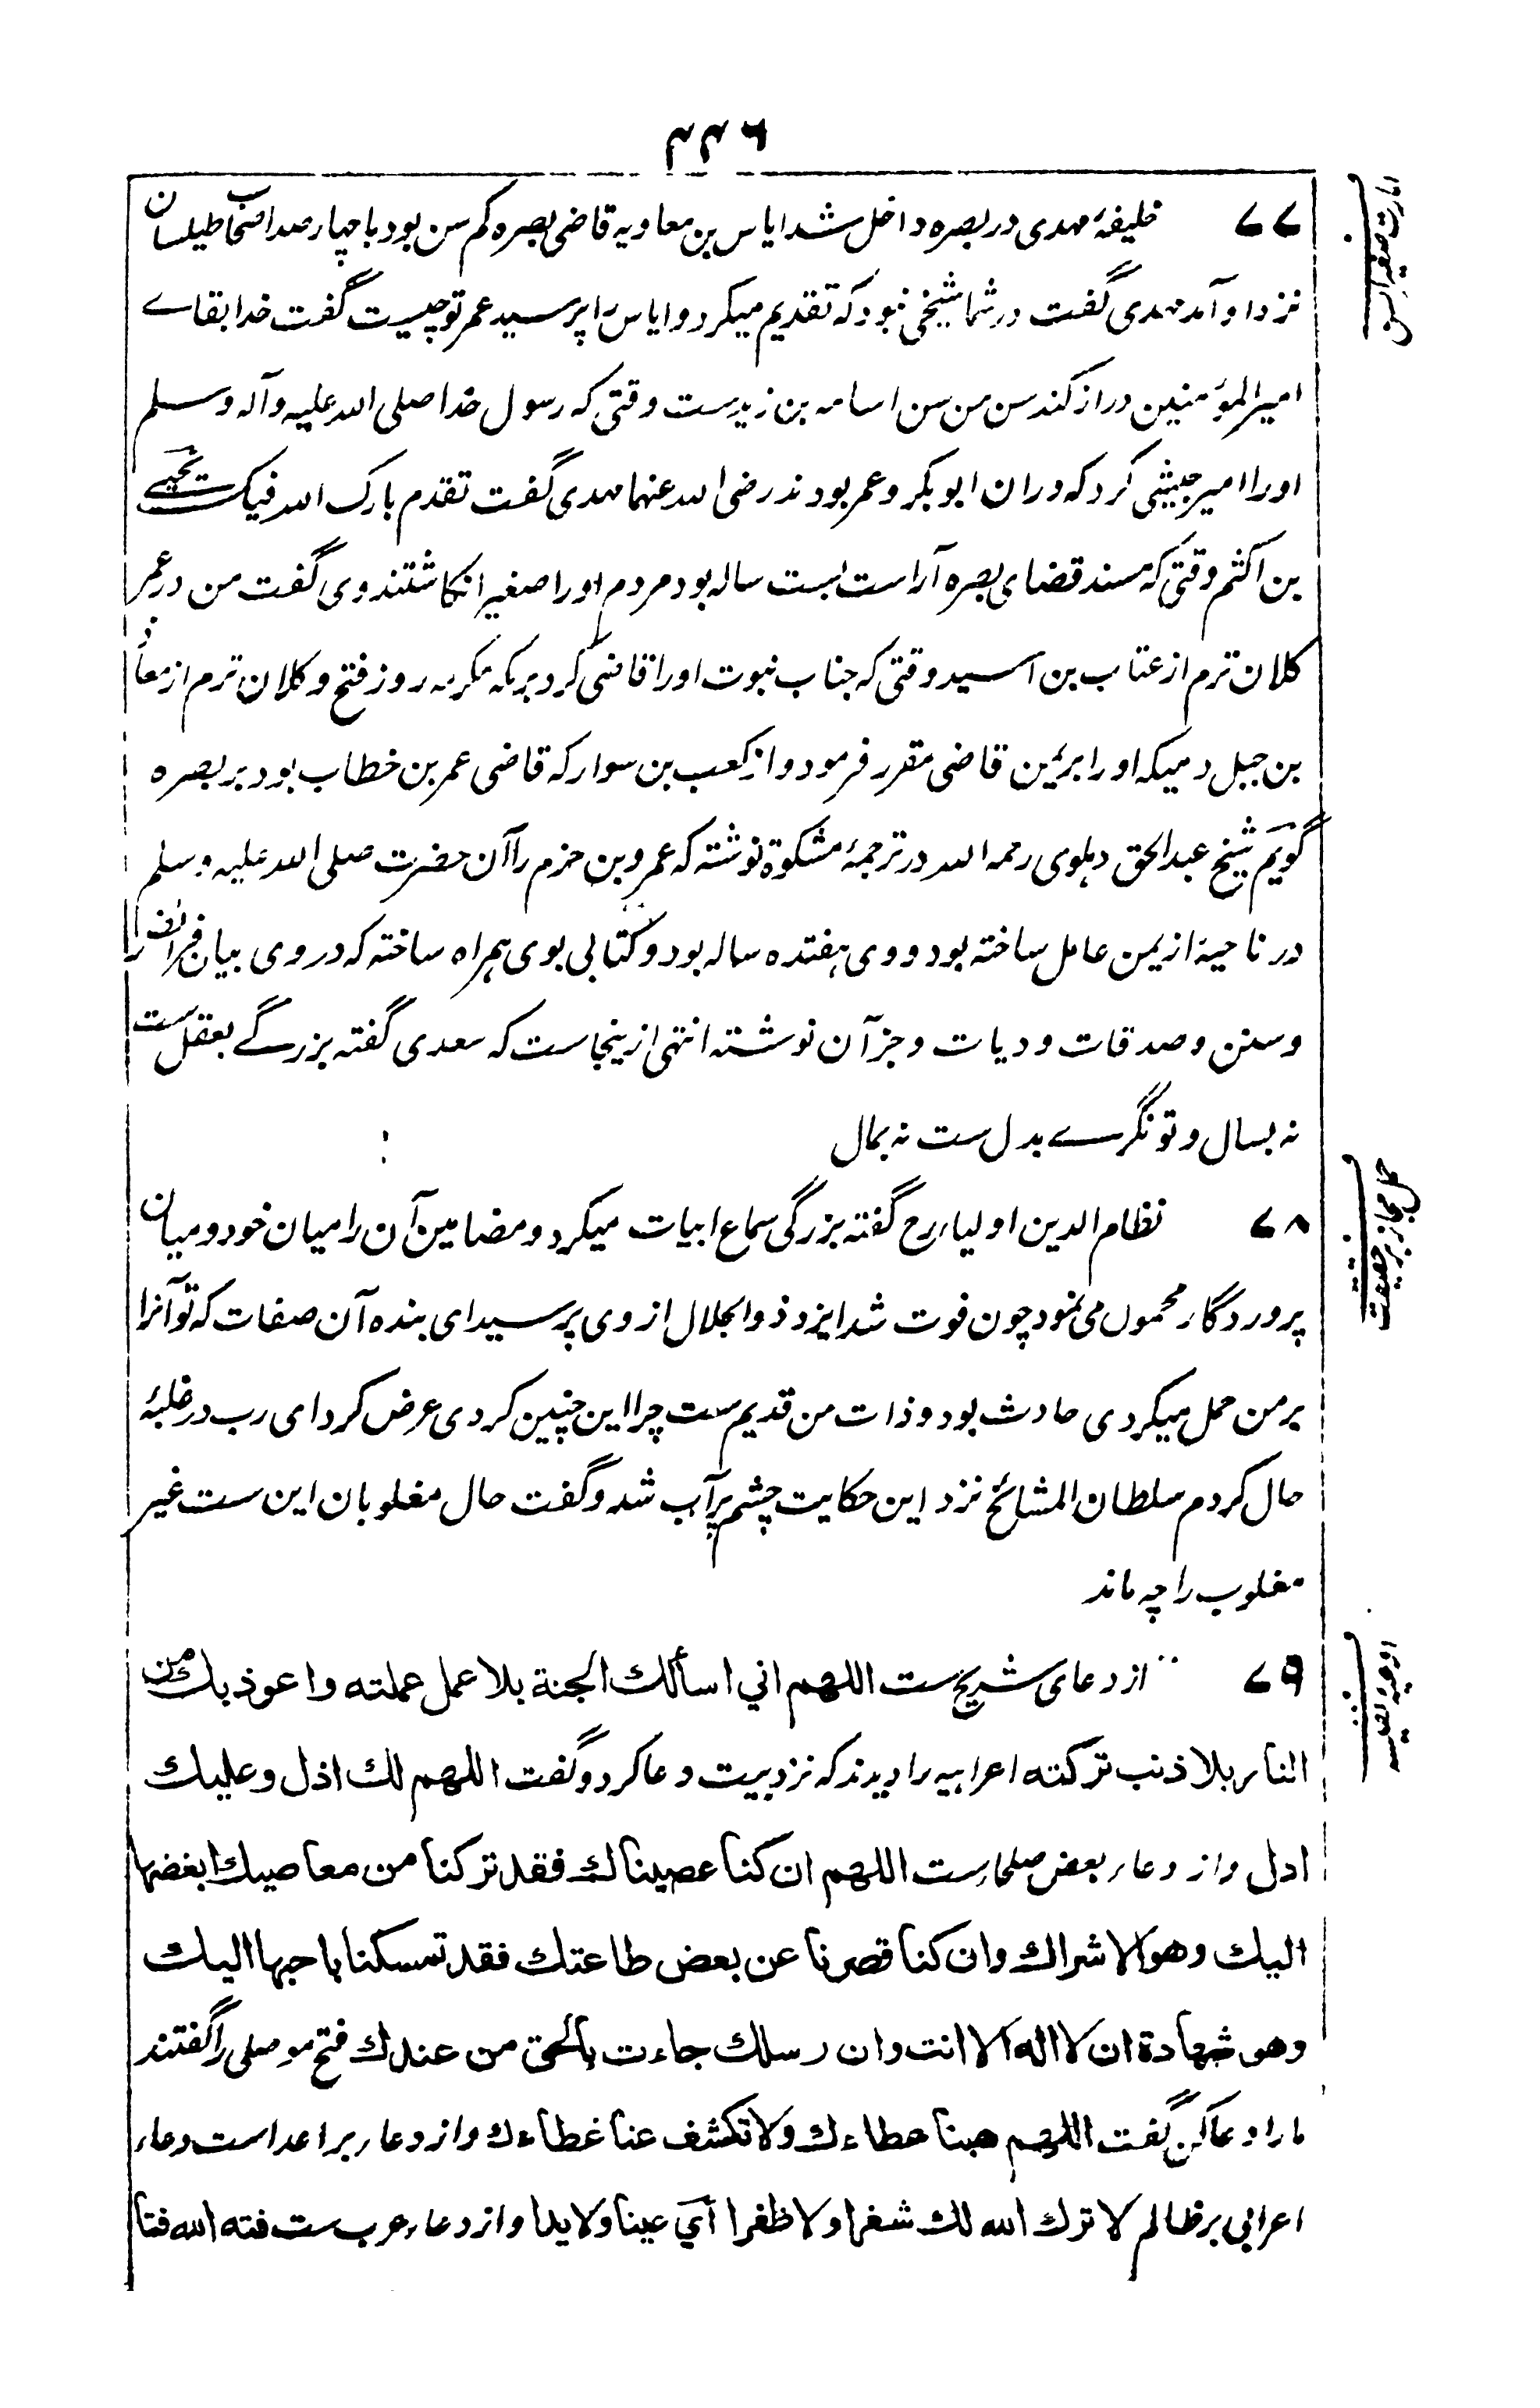 ۴۴۶
۷۷ خلیفۂ مهدی در بصره داخل شد ایاس بن معاویه قاضی بصره کم سن بود با چهار صد اصحاب طیلسان
نزد او آمد مهدی گفت در شما شیخی نبود که تقدیم میکرد و ایاس را پرسید عمر تو چیست گفت خدا بقاے
امیر المؤمنین دراز کند سن من سن اسامه بن زیدست وقتی که رسول خدا صلی الله علیه وآله وسلم
او را امیر جیشی کرد که دران ابو بکر و عمر بودند رضی الله عنهما مهدی گفت تقدم بارک الله فیک یحیی
بن اکثم وقتی که مسند قضای بصره آراست بست ساله بود مردم او را صغیر انکاشتند وی گفت من در عمر
کلان ترم از عتاب بن اسید وقتی که جناب نبوت او را قاضی کرد بر مکه مکرمه روز فتح و کلان ترم از معاذ
بن جبل دمیکه او را بر یمن قاضی مقرر فرمود و از کعب بن سوار که قاضی عمر بن خطاب بود بر بصره
گویم شیخ عبد الحق دہلوی رحمه الله در ترجمۂ مشکوة نوشته که عمرو بن حزم را آن حضرت صلی الله علیه وسلم
در ناحیۂ از یمن عامل ساخته بود و وی ہفتده ساله بود و کتابی بوی ہمراه ساخته که در وی بیان فرائض را
وسنن وصدقات ودیات وجز آن نوشته انتهی ازینجاست که سعدی گفته بزرگے بعقل ست
نه بسال و تونگرے بدل ست نه بمال
۷۸ نظام الدین اولیاء رح گفته بزرگی سماع ابیات میکرد و مضامین آن را میان خود و میان
پروردگار محمول می نمود چون فوت شد ایزد ذوالجلال از وی پرسید ای بنده آن صفات که تو آنرا
بر من حمل میکردی حادث بود و ذات من قدیم ست چرا این چنین کردی عرض کرد ای رب در غلبۂ
حال کردم سلطان المشائخ نزد این حکایت چشم پر آب شد و گفت حال مغلوبان این ست غیر
مغلوب را چه ماند
۷۹ از دعای شریح ست اللهم اني اسألك الجنة بلا عمل عملته واعوذ بك من
النار بلا ذنب تركته اعرابیه را دیدند که نزد بیت دعا کرد و گفت اللهم لك اذل وعليك
ادل واز دعاء بعض صلحاست اللهم ان كنا عصيناك فقد تركنا من معاصيك ابغضها
اليك وهو الاشراك وان كنا قصرنا عن بعض طاعتك فقد تمسكنا باحبها اليك
وهو شهادة ان لا اله الا انت وان رسلك جاءت بالحق من عندك فتح موصلی را گفتند
ما را دعا کن گفت اللهم هبنا عطاءك ولا تكشف عنا غطاءك واز دعاء بر اعداست دعاء
اعرابی بر ظالم لا ترك الله لك شفرا ولا ظفرا أي عينا ولا يدا واز دعاء عرب ست فته الله فتا
امارت صغیر السن
حمل مجاز بر حقیقت
ادعیۂ نفیسه